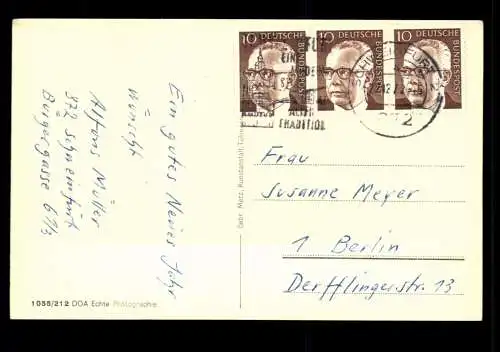 Ein gutes Neues Jahr
wünscht
Alfons Müller
872 Schweinfurt
Bürgergasse 6 1/2
1058/212 DOA Echte Photographie
Gebr. Metz, Kunstanstalt, Tübingen
10 DEUTSCHE BUNDESPOST
10 DEUTSCHE BUNDESPOST
10 DEUTSCHE BUNDESPOST
EIN
TRADITION
SCHWEINFURT 2
872
Frau
Susanne Meyer
1 Berlin
Derfflingerstr. 13